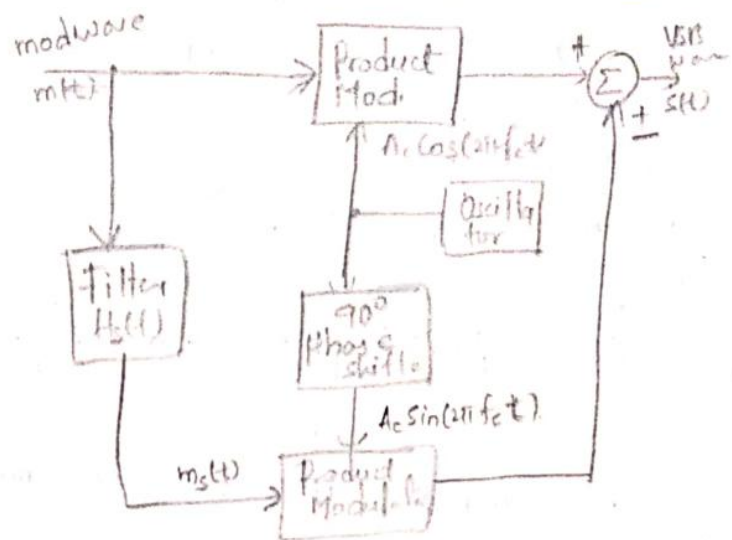 modwave
m(t)
Product
Mod.
+
Σ
VSB
S(t)
±
Ac Cos(2πfct
Oscilla
tor
Filter
Hs(f)
90°
Phase
shift
Ac Sin(2πfc t)
ms(t)
Product